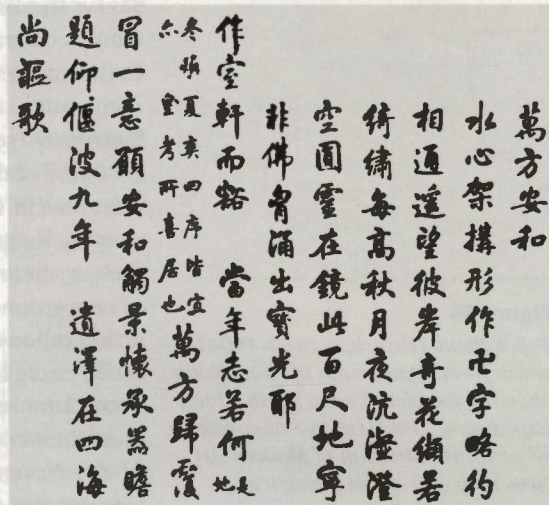 萬方安和
水心架搆形作卍字略彴
相通遙望彼岸奇花纈若
綺繡每高秋月夜沆瀣澄
空圓靈在鏡此百尺地寧
非佛胷涌出寶光耶
作室軒而豁 當年志若何 是地
冬燠夏爽四序皆宜
皇考所喜居也 萬方歸覆
冒一意願安和觸景懷承器瞻
題仰偃波九年 遺澤在四海
尚謳歌